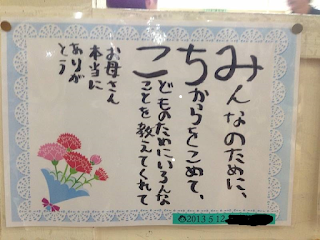 みんなのために、
ちからをこめて、
こどものためにいろんな
ことを教えてくれて
お母さん
本当に
ありが
とう
2013.5.12